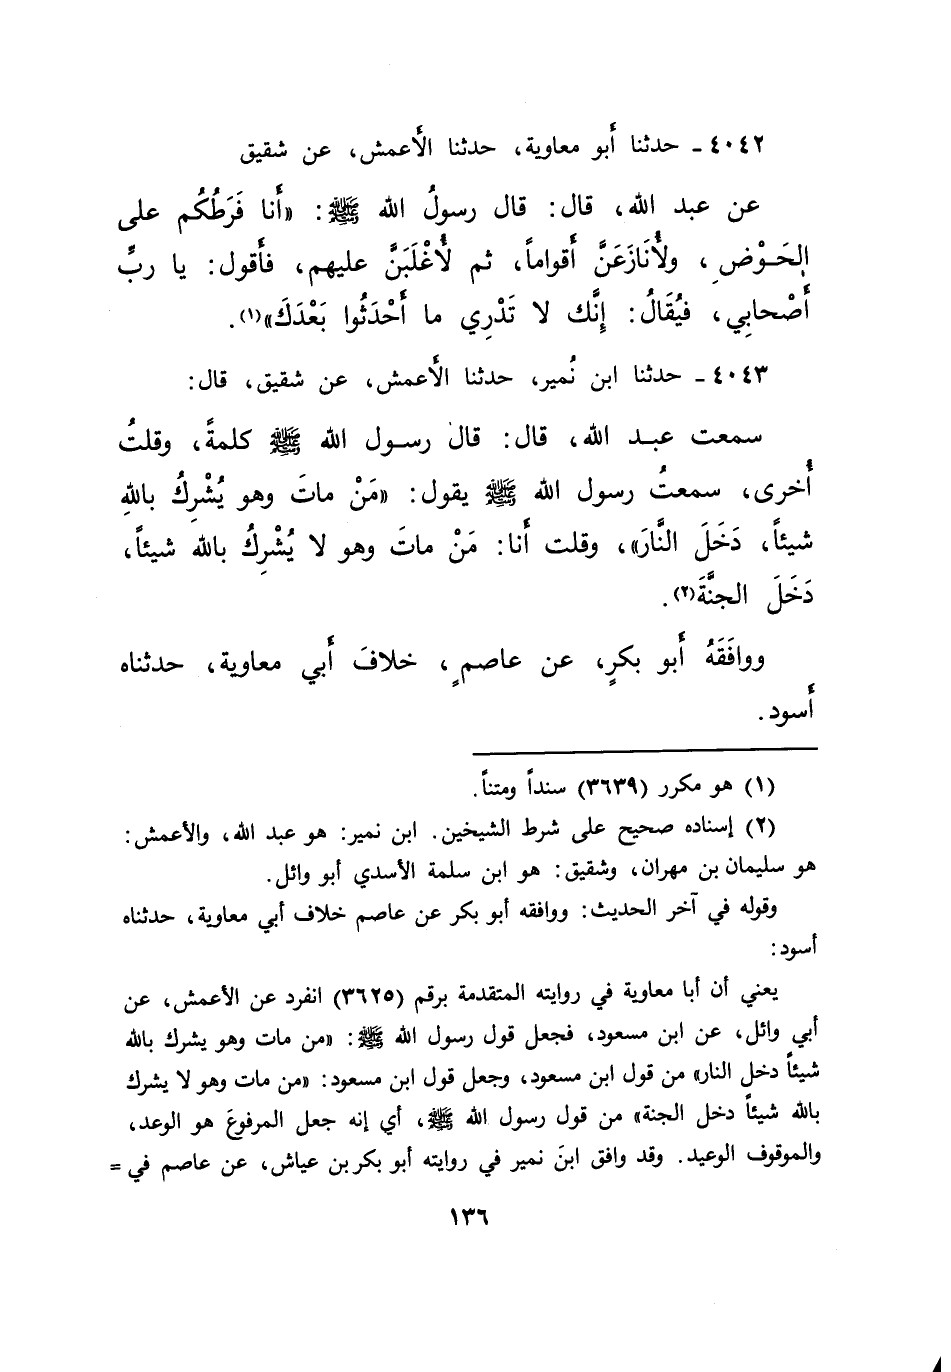 ٤٠٤٢ ـ حدثنا أَبو معاوية، حدثنا الأَعمش، عن شقيق
عن عبد الله، قال: قال رسولُ الله ﷺ: «أَنا فَرَطُكُم على
الحَوْضِ، ولأُنَازَعَنَّ أَقواماً، ثم لأُغْلَبَنَّ عليهم، فأَقول: يا ربِّ
أَصْحابِي، فيُقَالُ: إِنَّك لا تَدْرِي ما أَحْدَثُوا بَعْدَكَ»(١).
٤٠٤٣ ـ حدثنا ابن نُمير، حدثنا الأَعمش، عن شقيق، قال:
سمعت عبد الله، قال: قال رسول الله ﷺ كلمةً، وقلتُ
أُخرى، سمعتُ رسول الله ﷺ يقول: «مَنْ ماتَ وهو يُشْرِكُ باللهِ
شيئاً، دَخَلَ النَّارَ»، وقلت أَنا: مَنْ ماتَ وهو لا يُشْرِكُ بالله شيئاً،
دَخَلَ الجنَّةَ(٢).
ووافَقَهُ أَبو بكرٍ، عن عاصمٍ، خلافَ أَبي معاوية، حدثناه
أَسود.
(١) هو مكرر (٣٦٣٩) سنداً ومتناً.
(٢) إسناده صحيح على شرط الشيخين. ابن نمير: هو عبد الله، والأعمش:
هو سليمان بن مهران، وشقيق: هو ابن سلمة الأسدي أبو وائل.
وقوله في آخر الحديث: ووافقه أبو بكر عن عاصم خلاف أبي معاوية، حدثناه
أسود:
يعني أن أبا معاوية في روايته المتقدمة برقم (٣٦٢٥) انفرد عن الأعمش، عن
أبي وائل، عن ابن مسعود، فجعل قول رسول الله ﷺ: «من مات وهو يشرك بالله
شيئاً دخل النار» من قول ابن مسعود، وجعل قول ابن مسعود: «من مات وهو لا يشرك
بالله شيئاً دخل الجنة» من قول رسول الله ﷺ، أي إنه جعل المرفوعَ هو الوعد،
والموقوف الوعيد. وقد وافق ابنَ نمير في روايته أبو بكر بن عياش، عن عاصم في =
١٣٦